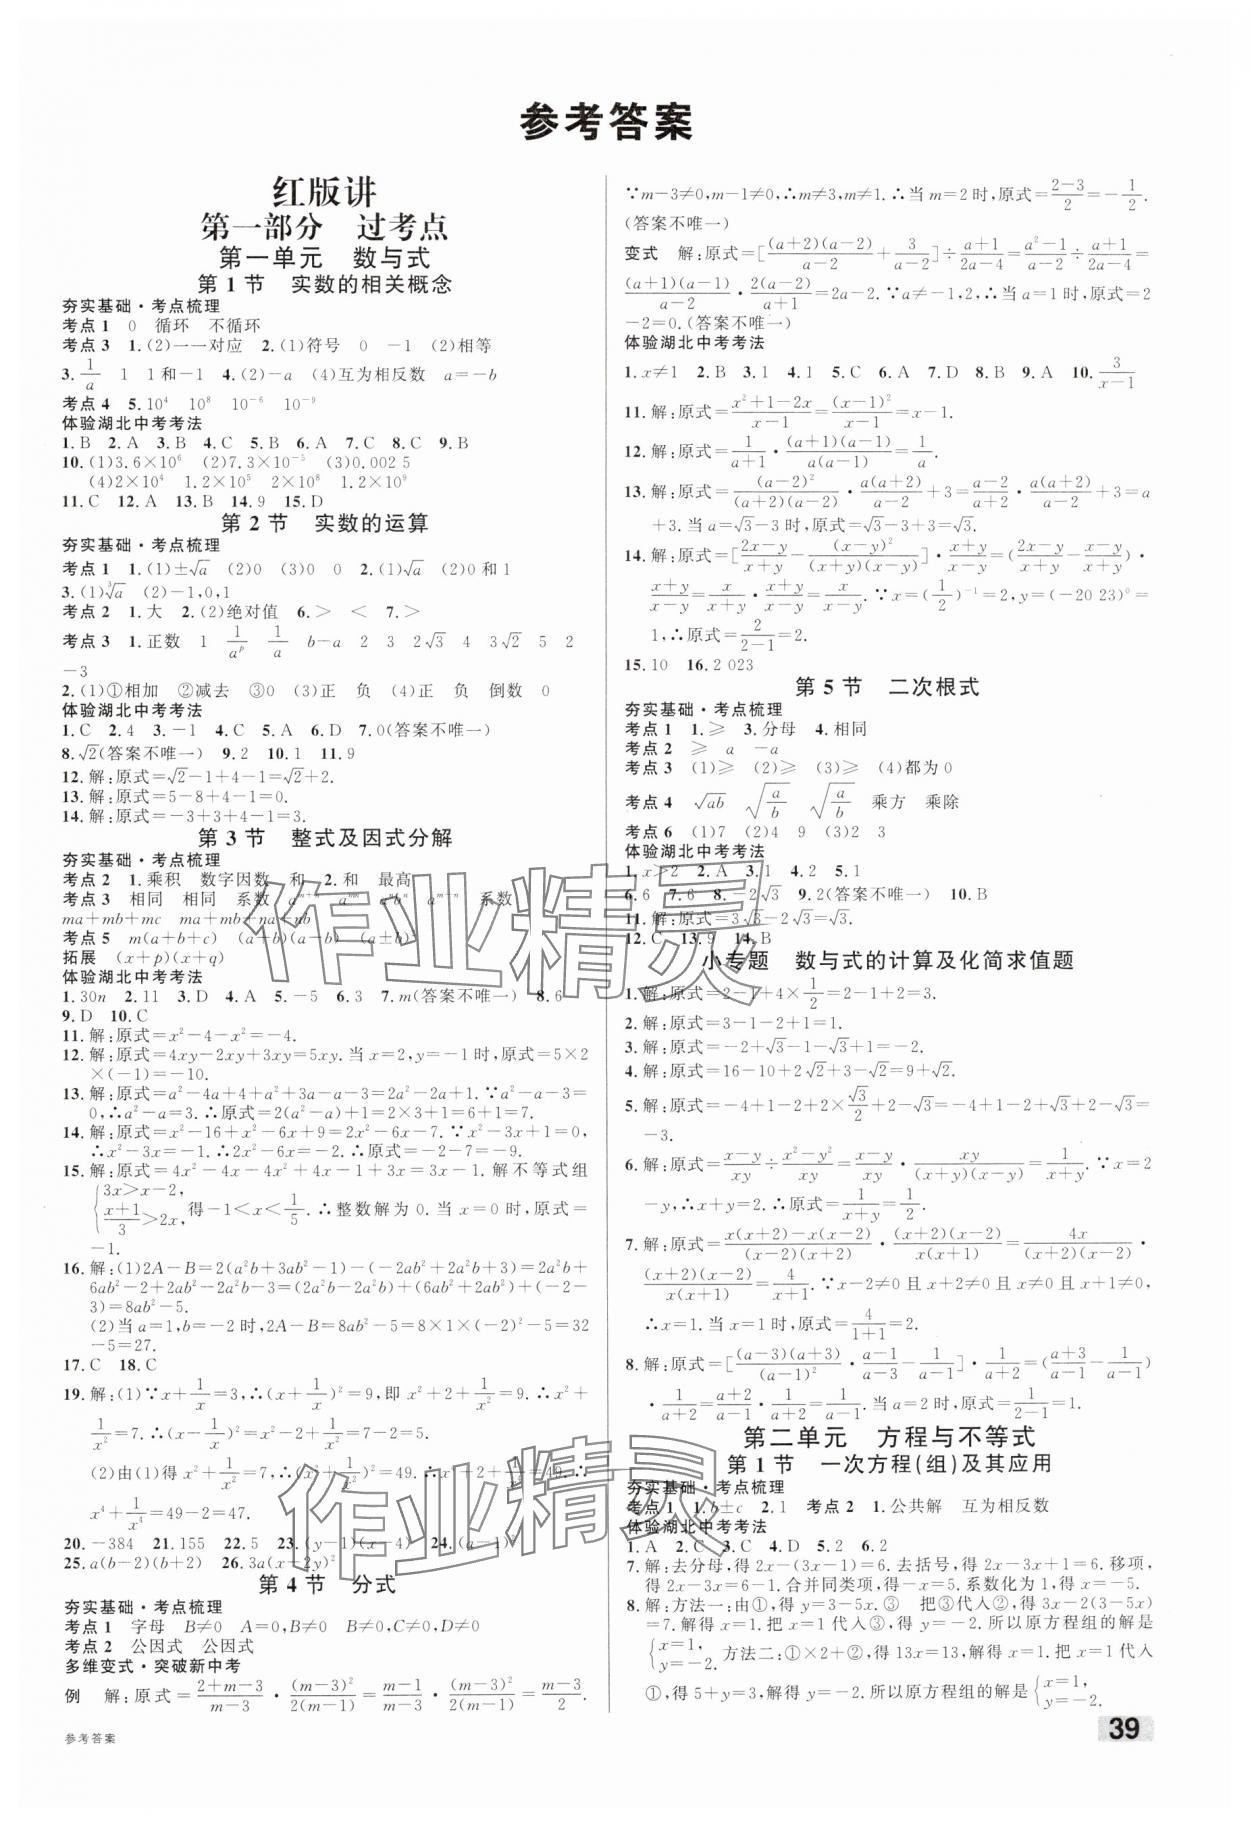 参考答案
红版讲
第一部分 过考点
第一单元 数与式
第1节 实数的相关概念
夯实基础·考点梳理
考点1 0 循环 不循环
考点3 1.(2)一一对应 2.(1)符号 0 -1 (2)相等
3.1/a 1 1和-1 4.(2)-a (4)互为相反数 a=-b
考点4 5.10⁴ 10⁸ 10⁻⁶ 10⁻⁹
体验湖北中考考法
1.B 2.A 3.B 4.C 5.B 6.A 7.C 8.C 9.B
10.(1)3.6×10⁶ (2)7.3×10⁻⁵ (3)0.002 5
(4)2×10⁴ 1.2×10⁵ 2×10⁸ 1.2×10⁹
11.C 12.A 13.B 14.9 15.D
第2节 实数的运算
夯实基础·考点梳理
考点1 1.(1)±√a (2)0 (3)0 0 2.(1)√a (2)0和1
3.(1)³√a (2)-1,0,1
考点2 1.大 2.(2)绝对值 6.> < 7.>
考点3 1.正数 1 1/aᵖ 1/a b-a 2 3 2√3 4 3√2 5 2
-3
2.(1)①相加 ②减去 ③0 (3)正 负 (4)正 负 倒数 0
体验湖北中考考法
1.C 2.4 3.-1 4.C 5.A 6.D 7.0(答案不唯一)
8.√2(答案不唯一) 9.2 10.1 11.9
12.解:原式=√2-1+4-1=√2+2.
13.解:原式=5-8+4-1=0.
14.解:原式=-3+3+4-1=3.
第3节 整式及因式分解
夯实基础·考点梳理
考点2 1.乘积 数字因数 和 2.和 最高
考点3 相同 相同 系数 aᵐ⁺ⁿ aᵐⁿ aⁿbⁿ aᵐ⁻ⁿ 系数
ma+mb+mc ma+mb+na+nb
考点5 m(a+b+c) (a+b)(a-b) (a±b)²
拓展 (x+p)(x+q)
体验湖北中考考法
1.30n 2.11 3.D 4.A 5.-5 6.3 7.m(答案不唯一) 8.6
9.D 10.C
11.解:原式=x²-4-x²=-4.
12.解:原式=4xy-2xy+3xy=5xy.当x=2,y=-1时,原式=5×2
×(-1)=-10.
13.解:原式=a²-4a+4+a²+3a-a-3=2a²-2a+1.∵a²-a-3=
0,∴a²-a=3.∴原式=2(a²-a)+1=2×3+1=6+1=7.
14.解:原式=x²-16+x²-6x+9=2x²-6x-7.∵x²-3x+1=0,
∴x²-3x=-1.∴2x²-6x=-2.∴原式=-2-7=-9.
15.解:原式=4x²-4x²+4x-1=4x-1.解不等式组
{3x>x-2, (x+1)/3>2x,得-1<x<1/5.∴整数解为0.当x=0时,原式=
-1.
16.解:(1)2A-B=2(a²b+3ab²-1)-(-2ab²+2a²b+3)=2a²b+
6ab²-2+2ab²-2a²b-3=(2a²b-2a²b)+(6ab²+2ab²)+(-2-
3)=8ab²-5.
(2)当a=1,b=-2时,2A-B=8ab²-5=8×1×(-2)²-5=32
-5=27.
17.C 18.C
19.解:(1)∵x+1/x=3,∴(x+1/x)²=9,即x²+2+1/x²=9.∴x²+
1/x²=7.∴(x-1/x)²=x²-2+1/x²=7-2=5.
(2)由(1)得x²+1/x²=7,∴(x²+1/x²)²=49.∴x⁴+2+1/x⁴=49.∴
x⁴+1/x⁴=49-2=47.
20.-384 21.155 22.5 23.(y-1)(x-4) 24.(a-1)²
25.a(b-2)(b+2) 26.3a(x+2y)²
第4节 分式
夯实基础·考点梳理
考点1 字母 B≠0 A=0,B≠0 B≠0 A=0,B≠0 B≠0,C≠0,D≠0
考点2 公因式 公因式
多维变式·突破新中考
例 解:原式=(2+m-3)/(m-3)·(m-3)²/2(m-1)=(m-1)/(m-3)·(m-3)²/2(m-1)=(m-3)/2.
∵m-3≠0,m-1≠0,∴m≠3,m≠1.∴当m=2时,原式=(2-3)/2=-1/2.
(答案不唯一)
变式 解:原式=[(a+2)(a-2)/(a-2)+3/(a-2)]÷(a+1)/(2a-4)=(a²-1)/(a-2)÷(a+1)/(2a-4)=
(a+1)(a-1)/(a-2)·2(a-2)/(a+1)=2a-2.∵a≠-1,2,∴当a=1时,原式=2
-2=0.(答案不唯一)
体验湖北中考考法
1.x≠1 2.B 3.1 4.1 5.C 6.A 7.D 8.B 9.A 10.3/(x-1)
11.解:原式=(x²+1-2x)/(x-1)=(x-1)²/(x-1)=x-1.
12.解:原式=1/(a+1)·(a+1)(a-1)/a(a-1)=1/a.
13.解:原式=(a-2)²/(a+2)(a-2)·a(a+2)/(a-2)+3=(a-2)/(a+2)·a(a+2)/(a-2)+3=a
+3.当a=√3-3时,原式=√3-3+3=√3.
14.解:原式=[(2x-y)/(x+y)-(x-y)²/(x+y)(x-y)]·(x+y)/(x-y)=((2x-y)/(x+y)-(x-y)/(x+y))·
(x+y)/(x-y)=x/(x+y)·(x+y)/(x-y)=x/(x-y).∵x=(1/2)⁻¹=2,y=(-20 23)⁰=
1,∴原式=2/(2-1)=2.
15.10 16.2 023
第5节 二次根式
夯实基础·考点梳理
考点1 1.≥ 3.分母 4.相同
考点2 ≥ a -a
考点3 (1)≥ (2)≥ (3)≥ (4)都为0
考点4 √ab √(a/b) √(a/b) 乘方 乘除
考点6 (1)7 (2)4 9 (3)2 3
体验湖北中考考法
1.x≥2 2.A 3.1 4.2 5.1
6.6 7.6 8.-2√3 9.2(答案不唯一) 10.B
11.解:原式=3√3-2√3=√3.
12.C 13.9 14.B
小专题 数与式的计算及化简求值题
1.解:原式=2-1+4×1/2=1+2=3.
2.解:原式=3-1-2+1=1.
3.解:原式=-2+√3-1-√3+1=-2.
4.解:原式=16-10+2√2+3-√2=9+√2.
5.解:原式=-4+1-2+2×√3/2+2-√3=-4+1-2+√3+2-√3=
-3.
6.解:原式=(x-y)/xy÷(x²-y²)/xy=(x-y)/xy·xy/(x+y)(x-y)=1/(x+y).∵x=2
-y,∴x+y=2.∴原式=1/(x+y)=1/2.
7.解:原式=(x(x+2)-x(x-2))/(x-2)(x+2)·(x+2)(x-2)/x(x+1)=4x/(x+2)(x-2)·
(x+2)(x-2)/x(x+1)=4/(x+1).∵x-2≠0且x+2≠0且x≠0且x+1≠0,
∴x=1.当x=1时,原式=4/(1+1)=2.
8.解:原式=[(a-3)(a+3)/(a-1)²·(a-1)/(a-3)-1/(a-1)]·1/(a+2)=((a+3)/(a-1)-1/(a-1))
·1/(a+2)=(a+2)/(a-1)·1/(a+2)=1/(a-1).当a=2时,原式=1/(2-1)=1.
第二单元 方程与不等式
第1节 一次方程(组)及其应用
夯实基础·考点梳理
考点1 1.b±c 2.1 考点2 1.公共解 互为相反数
体验湖北中考考法
1.A 2.C 3.C 4.D 5.2 6.2
7.解:去分母,得2x-(3x-1)=6.去括号,得2x-3x+1=6.移项,
得2x-3x=6-1.合并同类项,得-x=5.系数化为1,得x=-5.
8.解:方法一:由①,得y=3-5x.③ 把③代入②,得3x-2(3-5x)
=7.解得x=1.把x=1代入③,得y=-2.所以原方程组的解是
{x=1, y=-2. 方法二:①×2+②,得13x=13,解得x=1.把x=1代入
①,得5+y=3,解得y=-2.所以原方程组的解是{x=1, y=-2.
参考答案
39
作业精灵
作业精灵